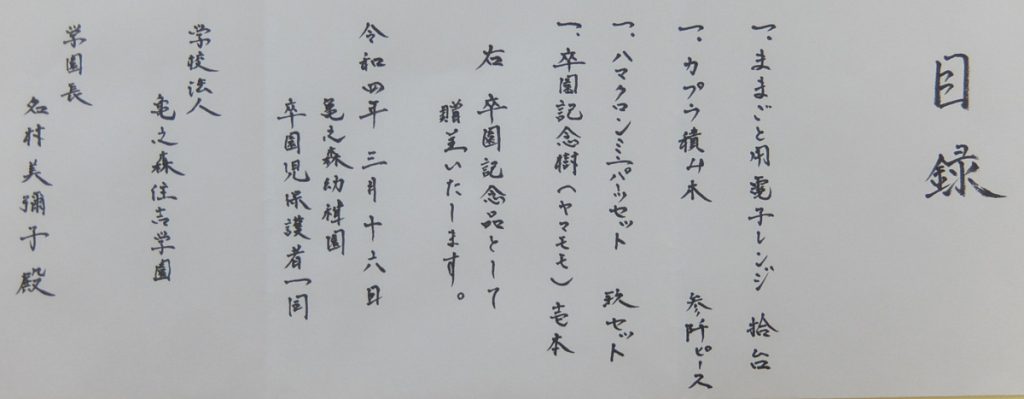 目録
一、ままごと用電子レンジ 拾台
一、カプラ積み木 参阡ピース
一、ハマクロンミニパーツセット 玖セット
一、卒園記念樹(ヤマモモ)壱本
右 卒園記念品として
贈呈いたします。
令和四年 三月十六日
亀之森幼稚園
卒園児保護者一同
学校法人
亀之森住吉学園
学園長
名村美彌子殿